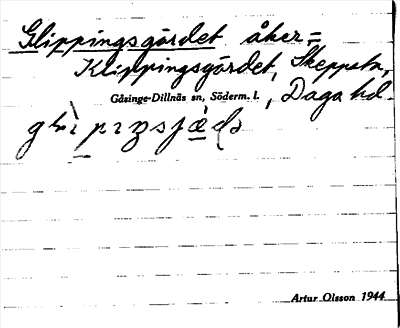 Glippingsgärdet åker =
Klippingsgärdet, Skeppsta,
Gåsinge-Dillnäs sn, Söderm. l., Daga hd.
Artur Olsson 1944